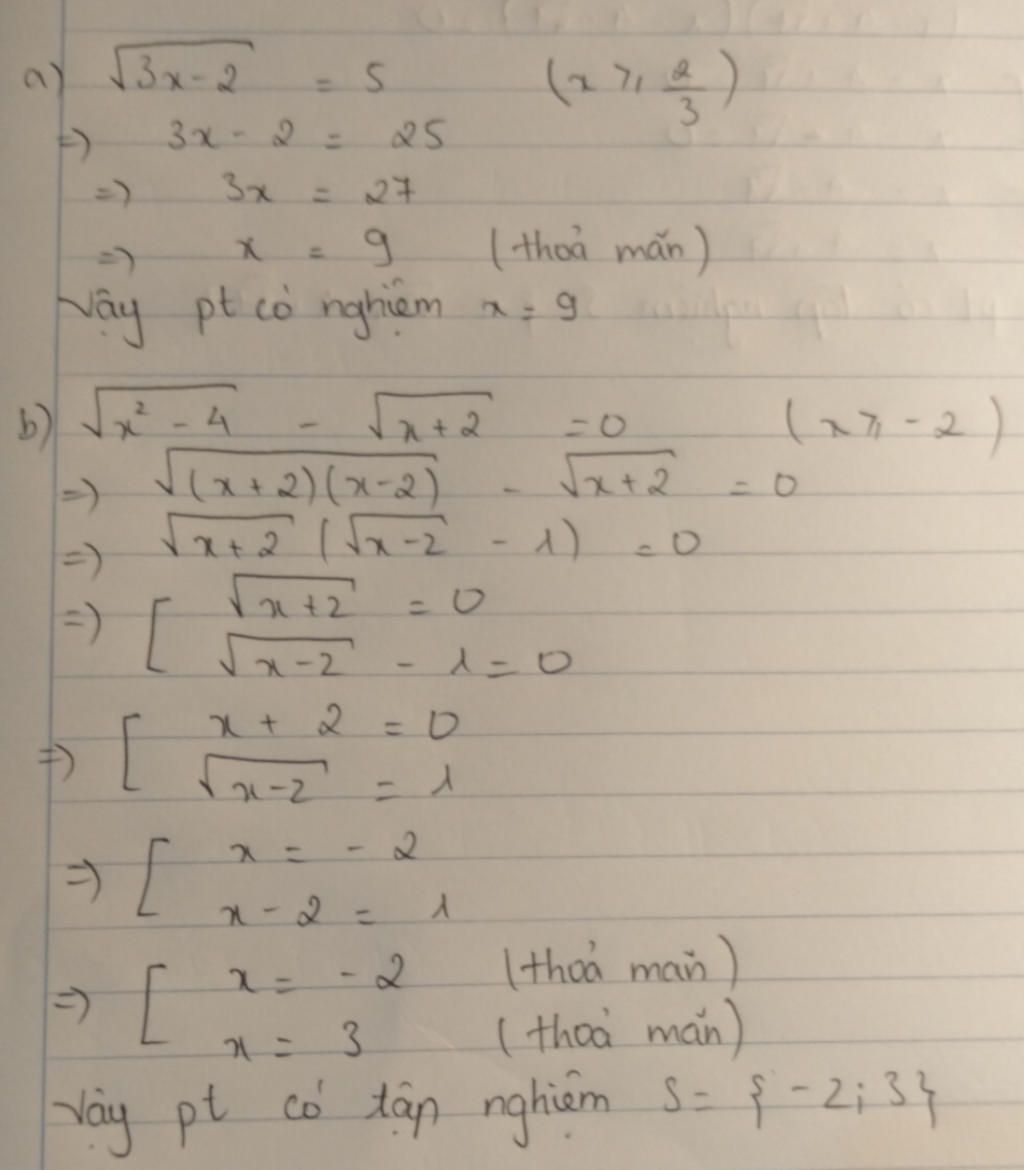 a) √(3x-2) = 5 (x ⩾ 2/3)
=) 3x - 2 = 25
=) 3x = 27
=) x = 9 (thoả mãn)
Vậy pt có nghiệm x = 9
b) √(x² - 4) - √(x+2) = 0 (x ⩾ -2)
=) √((x+2)(x-2)) - √(x+2) = 0
=) √(x+2) (√(x-2) - 1) = 0
=) [ √(x+2) = 0
√(x-2) - 1 = 0
=) [ x + 2 = 0
√(x-2) = 1
=) [ x = - 2
x - 2 = 1
=) [ x = - 2 (thoả mãn)
x = 3 (thoả mãn)
Vậy pt có tập nghiệm S = {-2; 3}